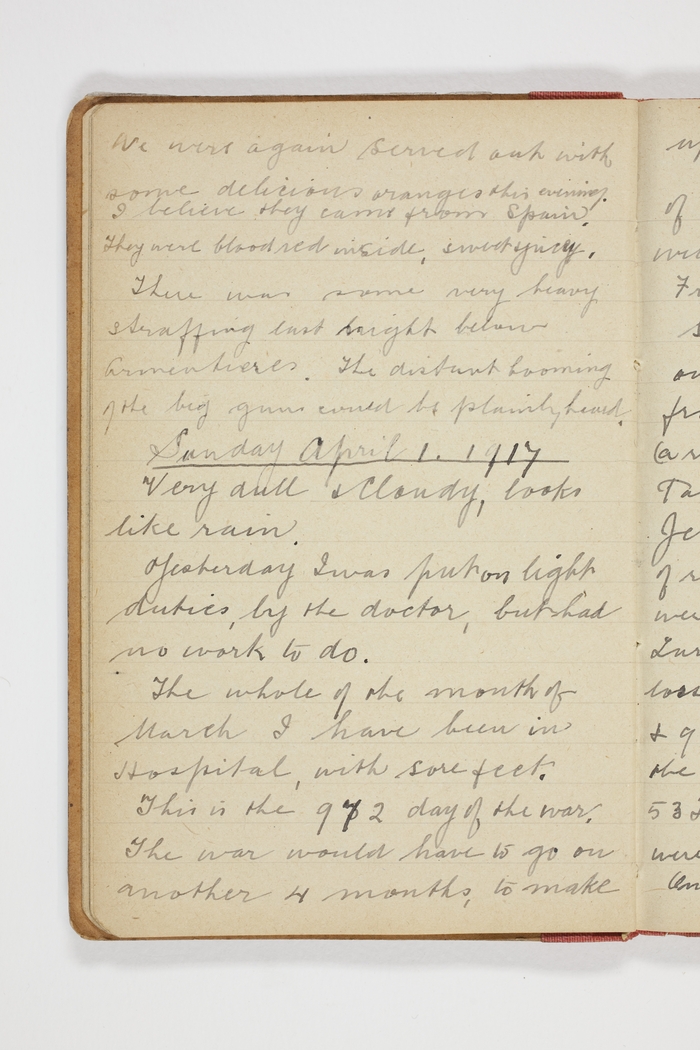 We were again served out with
some delicious oranges this evening.
I believe they came from Spain.
They were blood red inside, sweet & juicy.
There was some very heavy
straffing last night below
Armentieres. The distant booming
of the big guns could be plainly heard.
Sunday April 1. 1917
Very dull & Cloudy, looks
like rain.
Yesterday I was put on light
duties, by the doctor, but had
no work to do.
The whole of the month of
March I have been in
Hospital, with sore feet.
This is the 972 day of the war.
The war would have to go on
another 4 months, to make
of
Fr
s
fr
(a
Ta
Je
of
were
& 9
the
53
were